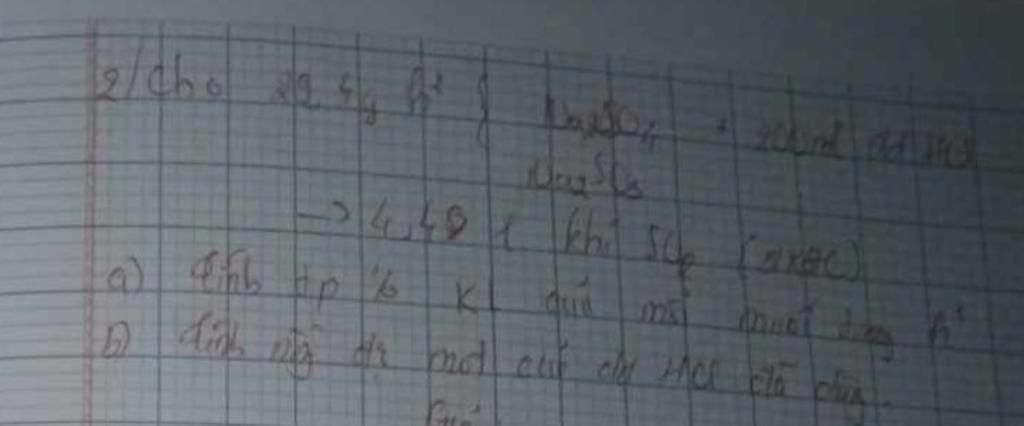 2/ Cho g h² { Na₂SO₄ + dd HCl
Na₂SO₃
→ 4,48 l khí SO₂ (đktc)
a) tính tp % KL của mỗi muối trong h²
b) tính nồng độ mol của dd HCl đã dùng.